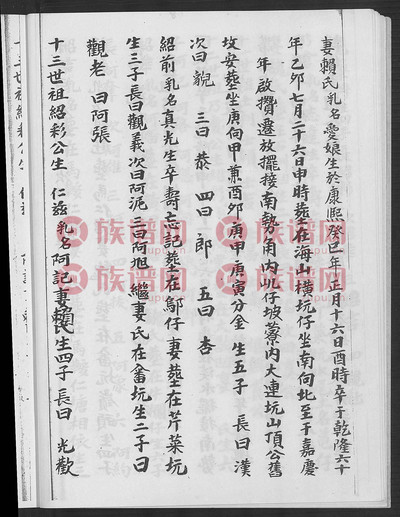 妻賴氏乳名愛娘生於康熙癸巳年正月十六日酉時卒于乾隆六十
年乙卯七月二十六日申時葬在海山橫坑仔坐南向北至于嘉慶
年啟攢遷放擺接南勢角內坑仔坡藔內大連坑山頂公舊
坟安葬坐庚向甲兼酉卯庚申庚寅分金 生五子 長曰漢
次曰貌 三曰恭 四曰郎 五曰杏
紹前乳名真先生卒壽忘記葬在鄔仔 妻葬在芹菜坑
生三子長曰觀義次曰阿泥三曰阿旭 繼妻氏在畬坑生二子曰
觀老 曰阿張
十三世祖紹彩公生 仁茲乳名阿記妻賴氏生四子長曰 光歡
族谱网